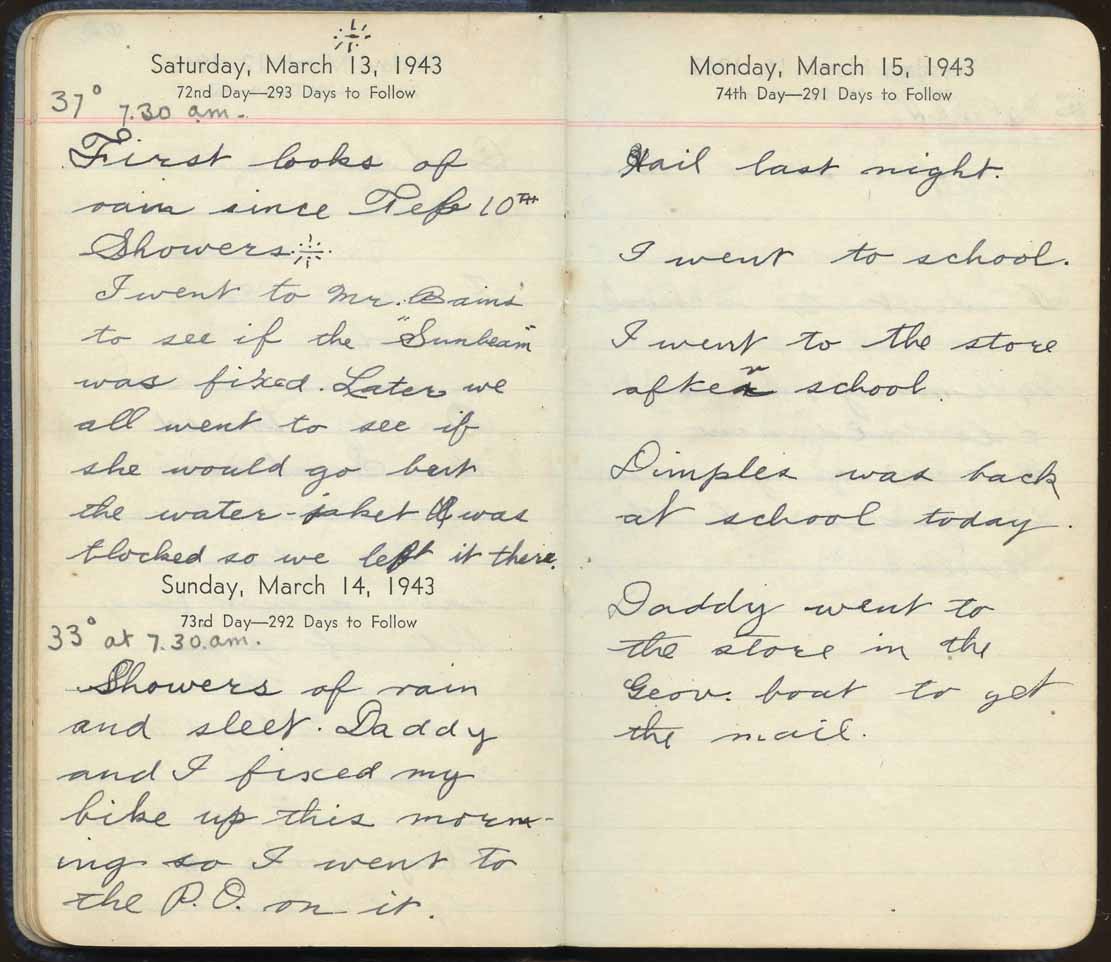 Saturday, March 13, 1943
72nd Day—293 Days to Follow
37° 7.30 am.
First looks of
rain since Feb 10TH
Showers
I went to Mr. Bains'
to see if the "Sunbeam"
was fixed. Later we
all went to see if
she would go but
the water-jaket was
blocked so we left it there.
Sunday, March 14, 1943
73rd Day—292 Days to Follow
33° at 7.30.am.
Showers of rain
and sleet. Daddy
and I fixed my
bike up this morn-
ing so I went to
the P.O. on it.
Monday, March 15, 1943
74th Day—291 Days to Follow
Hail last night.
I went to school.
I went to the store
after school.
Dimples was back
at school today.
Daddy went to
the store in the
Geov. boat to get
the mail.